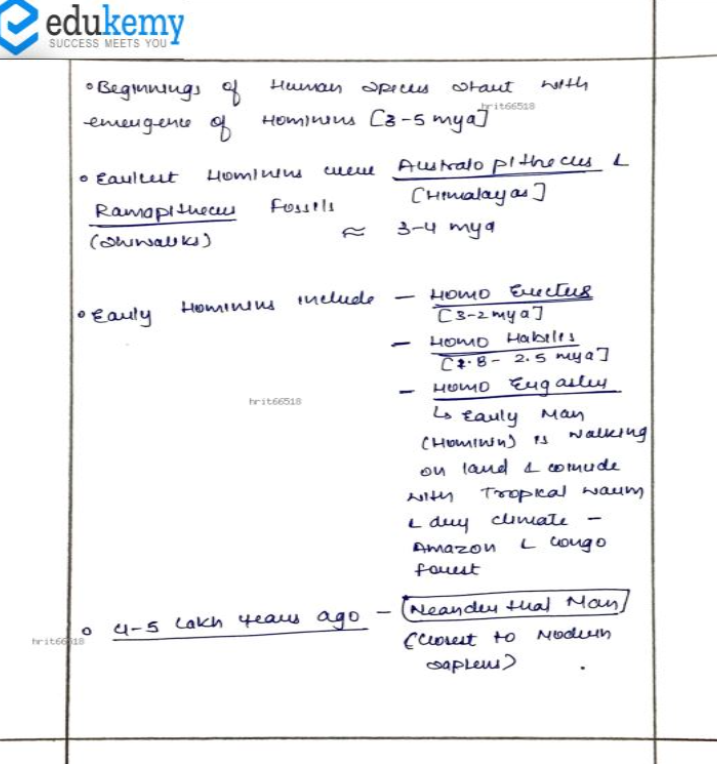 edukemy
SUCCESS MEETS YOU
• Beginnings of Human species start with
hrit66518
emergence of Hominins [3-5 mya]
• Earliest Hominins were Australopithecus &
[Himalayas]
Ramapithecus Fossils
(Shiwaliks) ≈ 3-4 mya
• Early Hominins include — Homo Erectus
[3-2 mya]
— Homo Habiles
2.5 mya]
hrit66518
— Homo Ergaster
↳ Early Man
(Hominin) is walking
on land & coincide
with Tropical warm
& dry climate -
Amazon & Congo
forest
• 4-5 Lakh years ago — (Neanderthal Man)
hrit66518
(closest to Modern
sapiens)